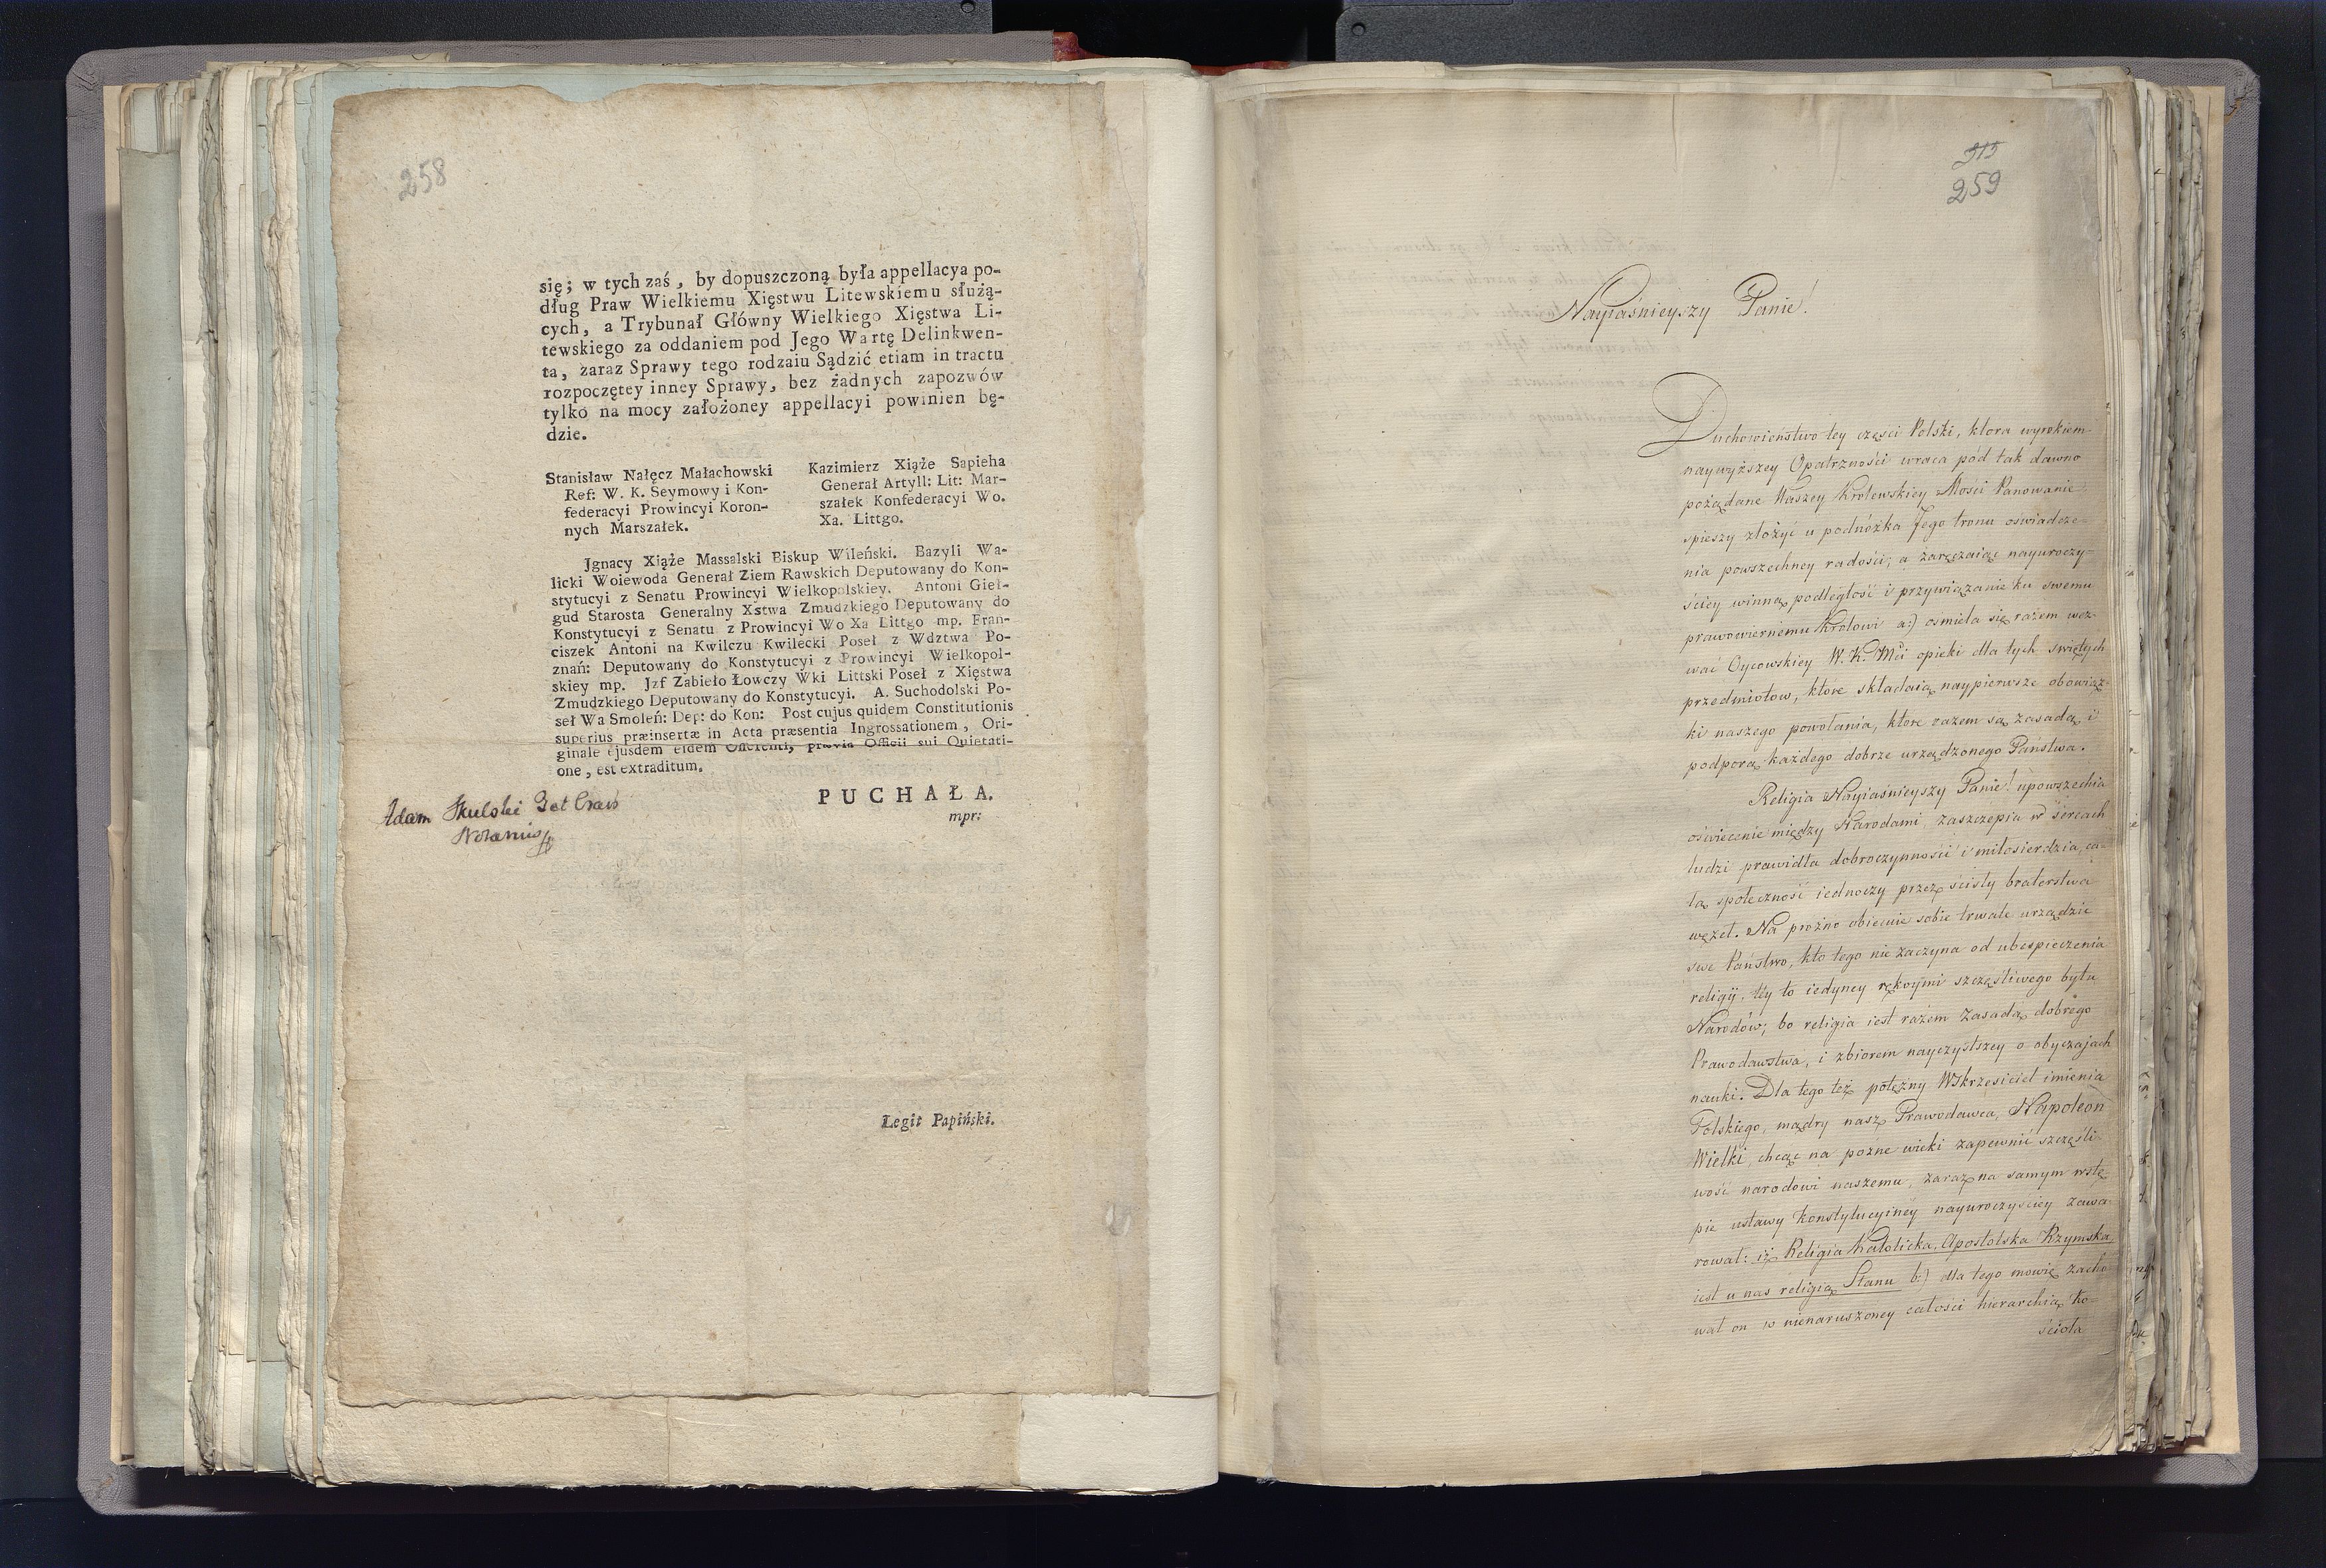 258
się; w tych zaś, by dopuszczoną była appellacya po-
dług Praw Wielkiemu Xięstwu Litewskiemu służą-
cych, a Trybunał Główny Wielkiego Xięstwa Li-
tewskiego za oddaniem pod Jego Wartę Delinkwen-
ta, zaraz Sprawy tego rodzaiu Sądzić etiam in tractu
rozpoczętey inney Sprawy, bez żadnych zapozwów
tylko na mocy założoney appellacyi powinien bę-
dzie.
Stanisław Nałęcz Małachowski
Ref: W. K. Seymowy i Kon-
federacyi Prowincyi Koron-
nych Marszałek.
Kazimierz Xiąże Sapieha
Generał Artyll: Lit: Mar-
szałek Konfederacyi Wo.
Xa. Littgo.
Jgnacy Xiąże Massalski Biskup Wileński. Bazyli Wa-
licki Woiewoda Generał Ziem Rawskich Deputowany do Kon-
stytucyi z Senatu Prowincyi Wielkopolskiey. Antoni Gieł-
gud Starosta Generalny Xstwa Zmudzkiego Deputowany do
Konstytucyi z Senatu z Prowincyi Wo Xa Littgo mp. Fran-
ciszek Antoni na Kwilczu Kwilecki Poseł z Wdztwa Po-
znań: Deputowany do Konstytucyi z Prowincyi Wielkopol-
skiey mp. Jzf Zabieło Łowczy Wki Littski Poseł z Xięstwa
Zmudzkiego Deputowany do Konstytucyi. A. Suchodolski Po-
seł Wa Smoleń: Dep: do Kon: Post cujus quidem Constitutionis
superius præinsertæ in Acta præsentia Ingrossationem, Ori-
ginale ejusdem eidem Offerenti, prævia Officii sui Quietati-
one, est extraditum.
PUCHAŁA.
mpr:
Adam Skulski
Legit Papiński.
515
259
Nayiaśnieyszy Panie!
Duchowieństwo tey części Polski, ktora wyrokiem
naywyższey Opatrzności wraca pod tak dawno
pożądane Waszey Krolewskiey Mości Panowanie
spieszy złożyć u podnóżka Jego tronu oświadcze-
nia powszechney radości; a zaręczaiąc nayuroczy-
ściey winną podległość i przywiązanie ku swemu
prawowiernemu Krolowi a:) ośmiela się razem wez-
wać Oycowskiey W. K. Mci opieki dla tych swiętych
przedmiotow, które składaią naypierwsze obowiąz-
ki naszego powołania, ktore razem są zasadą i
podporą każdego dobrze urządzonego Państwa.
Religia Nayiaśnieyszy Panie! upowszechnia
oświecenie między Narodami, zaszczepia w sercach
ludzi prawidła dobroczynności i miłosierdzia, ca-
łą społeczność iednoczy przez ścisły braterstwa
węzeł. Na prożno obiecuie sobie trwale urządzić
swe Państwo, kto tego nie zaczyna od ubespieczenia
religii, tey to iedyney rękoymi szczęśliwego bytu
Narodów; bo religia iest razem zasadą dobrego
Prawodawstwa, i zbiorem nayczystszey o obyczajach
nauki. Dla tego też potężny Wskrzesiciel imienia
Polskiego, mądry nasz Prawodawca, Napoleon
Wielki, chcąc na pożne wieki zapewnić szczęśli-
wość narodowi naszemu, zaraz na samym wstę-
pie ustawy konstytucyiney nayuroczyściey zawa-
rował: iż Religia Katolicka, Apostolska Rzymska,
iest u nas religią Stanu b:) dla tego mowię zacho-
wał on w nienaruszoney całości hierarchią Ko-
ścioła